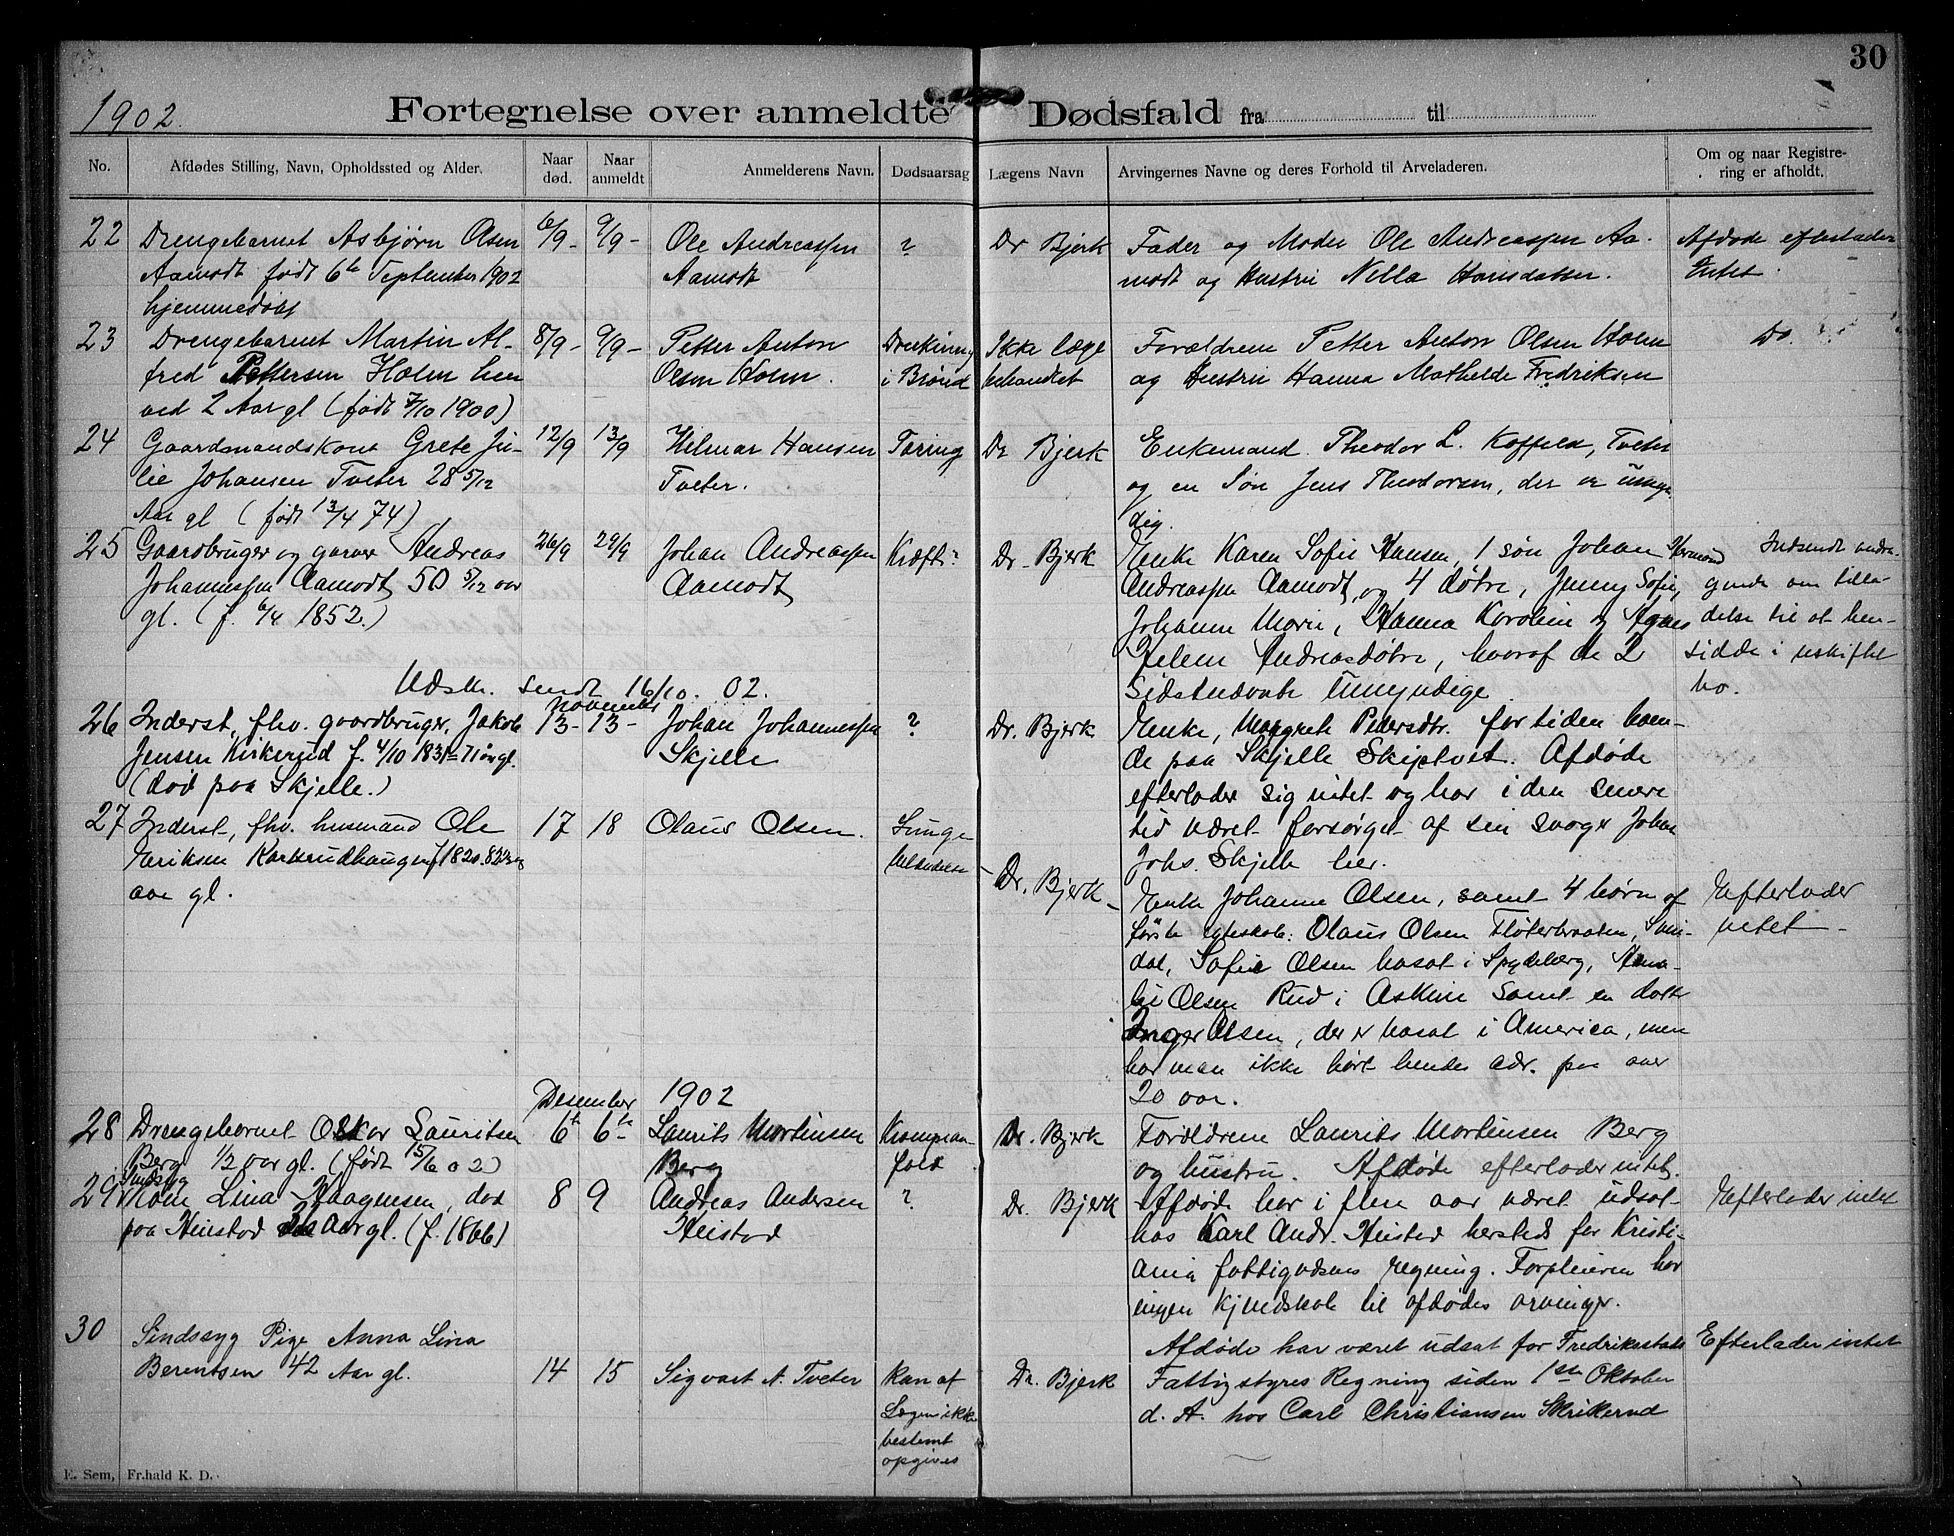 30
1902.
Fortegnelse over anmeldte Dødsfald fra til
No.
Afdødes Stilling, Navn, Opholdssted og Alder.
Naar død.
Naar anmeldt
Anmelderens Navn.
Dødsaarsag
Lægens Navn
Arvingernes Navne og deres Forhold til Arveladeren.
Om og naar Registrering er afholdt.
22
Drengebarnet Asbjørn Olsen
Aamodt født 6te September 1902
hjemmedøbt
6/9-
9/9-
Ole Andreassen
Aamodt
?
Dr Bjerk
Fader og Moder Ole Andreassen Aa-
modt og Hustru Nilla Hansdatter.
Afdøde efterlader
Intet.
23
Drengebarnet Martin Al-
fred Pettersen Holm her
ved 2 Aar gl (født 7/10 1900)
8/9-
9/9-
Petter Anton
Olsen Holm.
Drukning
i Brønd
Ikke læge
behandlet
Forældrene Petter Anton Olsen Holm
og Hustru Hanna Mathilde Fredriksen
Do.
24
Gaardmandskone Grete Ju-
lie Johansen Tveter 28 5/12
Aar gl (født 13/4 74)
12/9
13/9
Hilmar Hansen
Tveter.
Tæring
Dr Bjerk
Enkemand Theodor L. Koffeld, Tveter
og en Søn Jens Theodorsen, der er umyn-
dig.
25
Gaardbruger og garver Andreas
Johannessen Aamodt 50 5/12 aar
gl. (f. 6/4 1852.)
26/9
29/9
Johan Andreassen
Aamodt
Kræft?
Dr. Bjerk
Enke Karen Sofie Hansen, 1 søn Johan Hermand
Andreassen Aamodt, og 4 døtre, Jenny Sofie,
Johanne Marie, Hanna Karoline og Agnes
Helene Andreasdøtre, hvoraf de 2
Sidstnævnte Umyndige.
Indsendt andra-
gende om tilla-
delse til at hen-
sidde i uskiftet
bo.
Udskr. sendt 16/10. 02.
November
26
Inderst, fhv. gaardbruger, Jakob
Jensen Kirkerud f. 4/10 1831 = 71 år gl.
(død paa Skjelle.)
13-
13-
Johan Johannessen
Skjelle
?
Dr. Bjerk
Enke, Margrete Pedersdtr. for tiden boen-
de paa Skjelle Skiptvet. Afdøde
efterlader sig intet og har i den senere
tid været forsørget af sin svoger Johan
Johs. Skjelle her.
27
Inderst, fhv. husmand Ole
Eriksen Karlsrudhaugen f 1820. 82
aar gl.
17
18
Olaus Olsen.
Lunge
betændelse
Dr. Bjerk
Enke Johanne Olsen, samt 4 børn af
første egteskab: Olaus Olsen Fløterbraaten, Svin-
dal, Sofie Olsen bosat i Spydeberg, Ama-
lie Olsen Rud i Askim samt en datter
Inger Olsen, der er bosat i America, men
har man ikke hørt hendes adr. paa over
20 aar.
Efterlader
intet
Desember 1902
28
Drengebarnet Oskar Lauritsen
Berg 1/2 aar gl. (født 15/6 02)
6te
6te
Laurits Martinsen
Berg
Krampean-
fald
Dr. Bjerk
Forældrene Laurits Martinsen Berg
og hustru. Afdøde efterlader intet.
29
Sindsyg
Kone Lina Haagensen, død
paa Heistad 36 Aar gl. (f. 1866)
8
9
Andreas Andersen
Heistad
?
Dr. Bjerk
Afdøde har i flere aar været udsat
hos Karl Andr. Heistad hersteds for Kristi-
ania fattigvæsens regning. Forpleieren har
ingen kjendskab til afdødes arvinger.
Efterlader intet
30
Sindssyg Pige Anna Lina
Berentsen 42 Aar gl.
14
15
Sigvart A. Tveter
kan af
Lægen ikke
bestemt
opgives
Dr. Bjerk
Afdøde har været udsat for Fredrikstads
Fattigstyres Regning siden 1ste Oktober
d. A. hos Carl Christiansen Skrikerud
Efterlader intet
E. Sem, Fr.hald K. D.